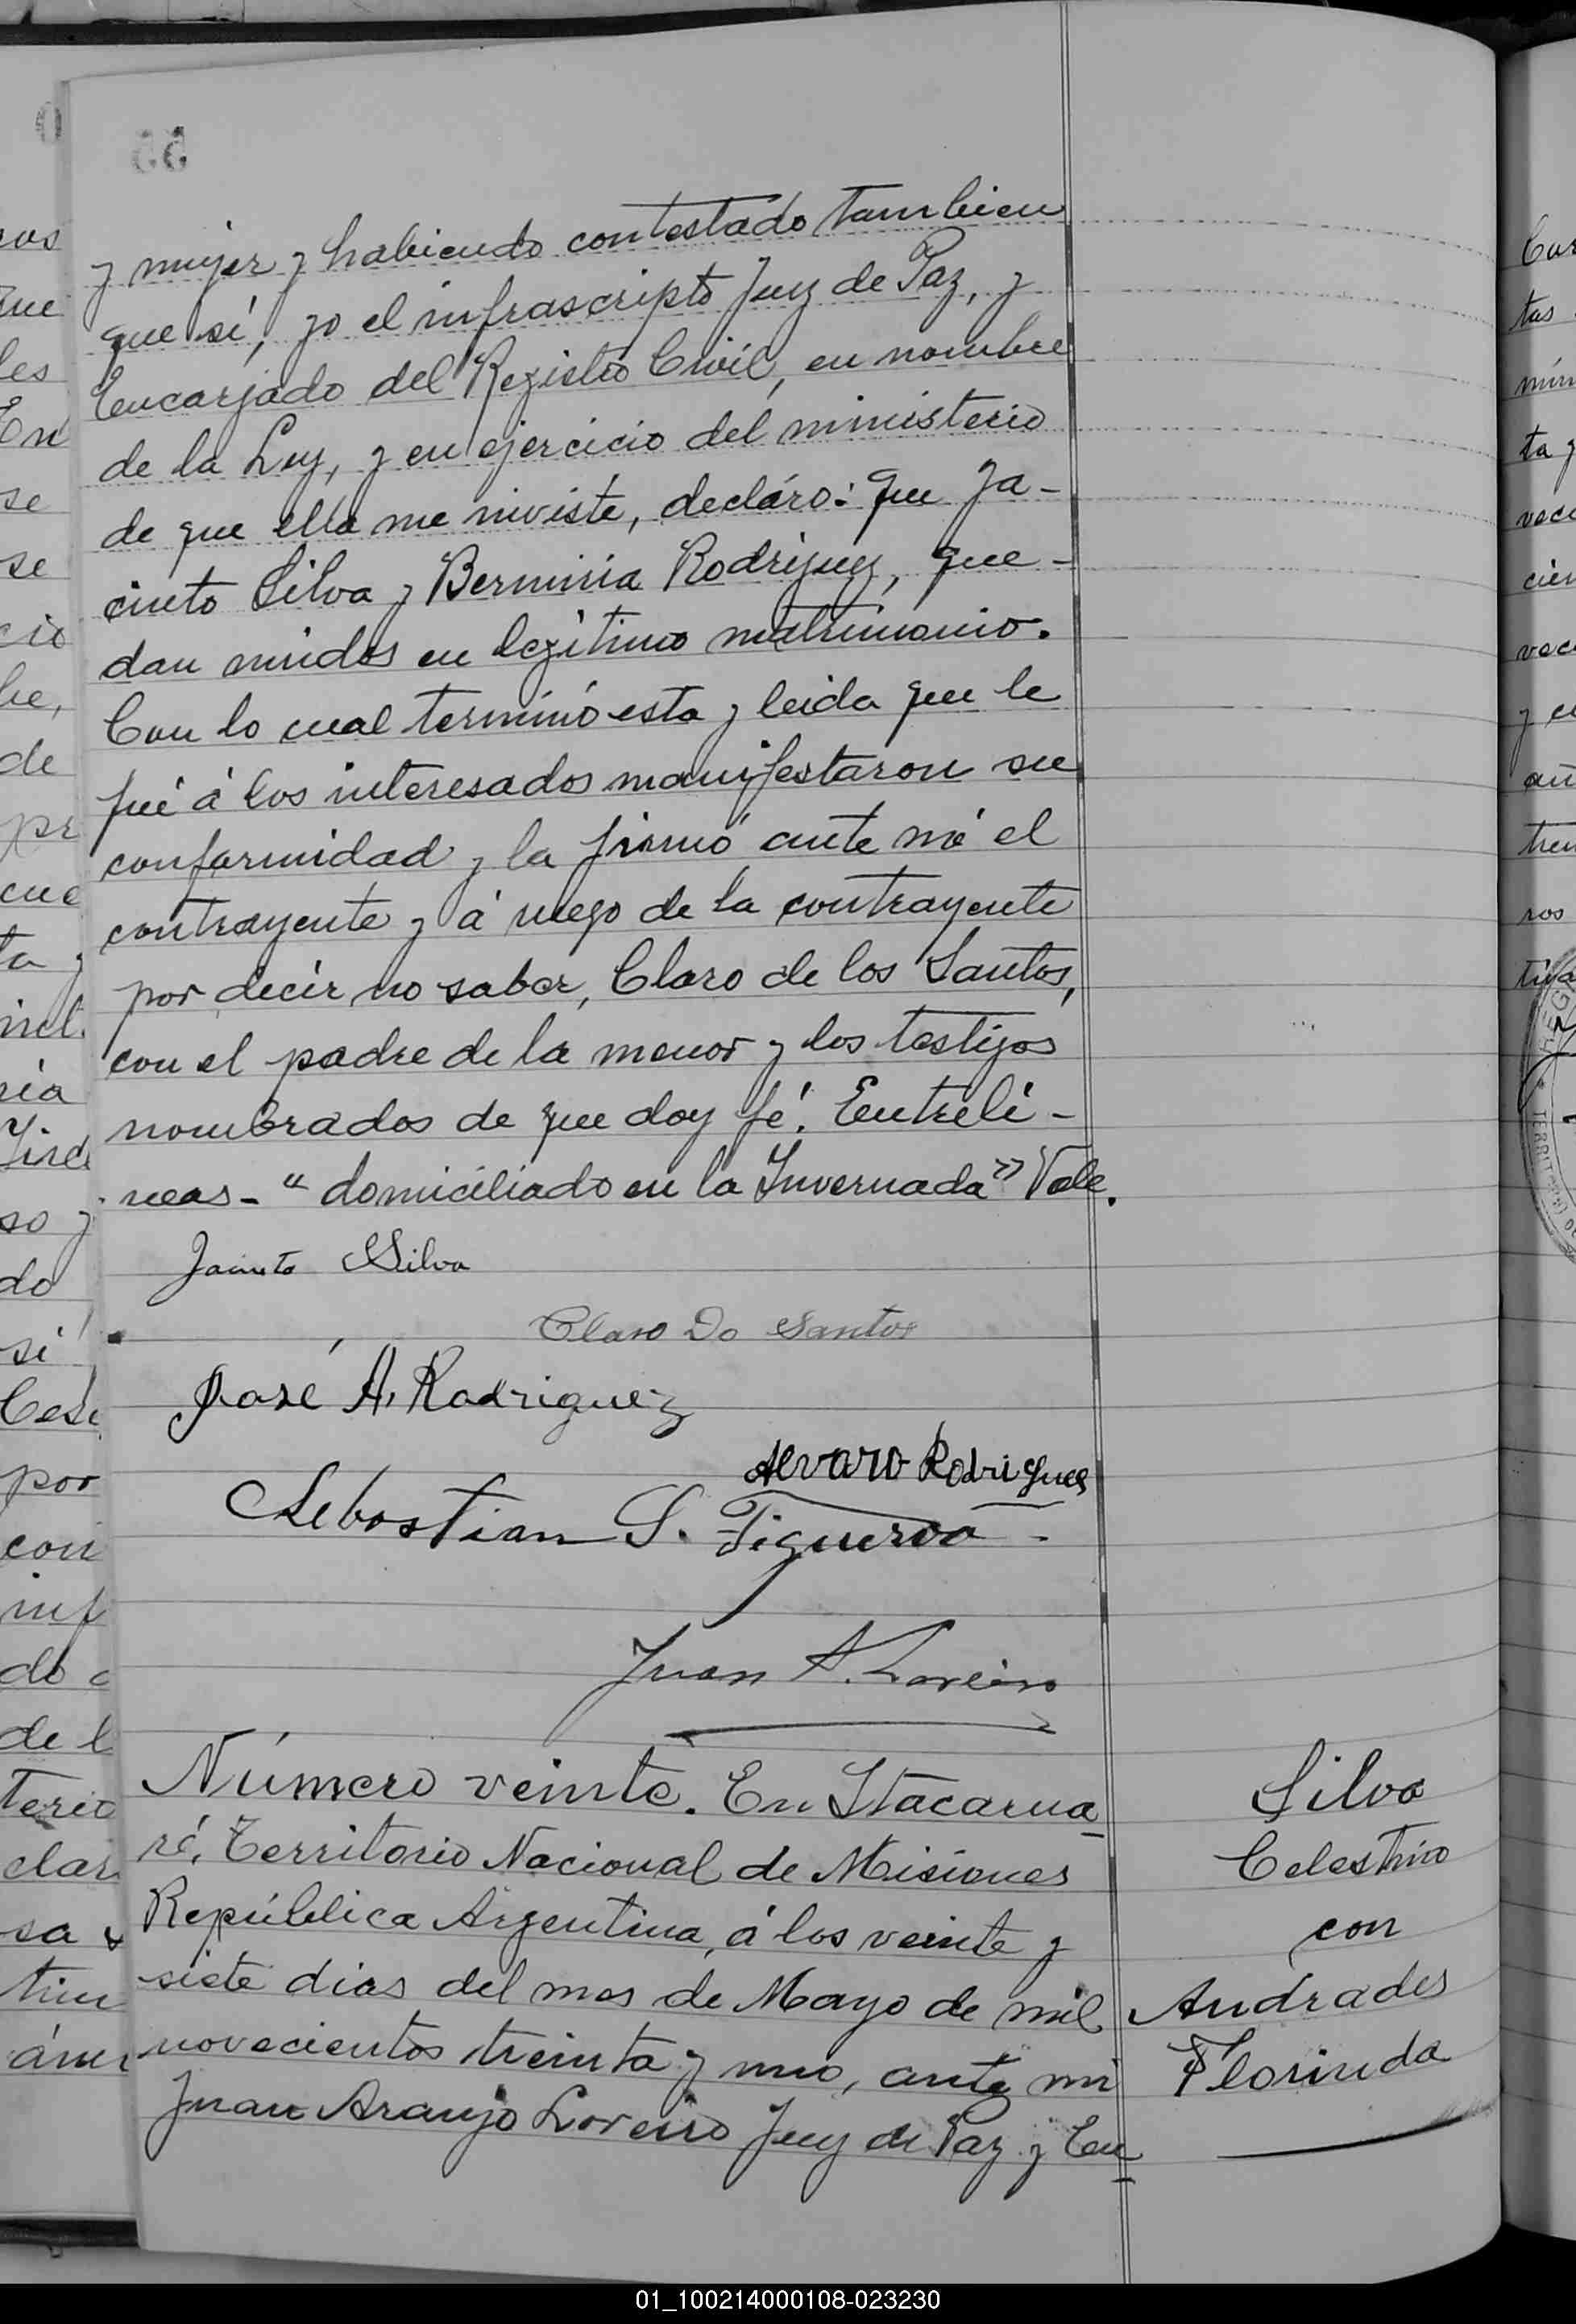 55
y mujer y habiendo contestado tambien
que sí, yo el infrascripto Juez de Paz, y
Encargado del Registro Civil, en nombre
de la Ley, y en ejercicio del ministerio
de que ella me inviste, decláro: que Ja-
cinto Silva y Berminia Rodriguez, que-
dan unidos en legítimo matrimonio.
Con lo cual terminó esta y leida que le
fué á los interesados manifestaron su
conformidad y la firmó ante mí el
contrayente y á ruego de la contrayente
por decir no saber, Claro de los Santos,
con el padre de la menor y los testigos
nombrados de que doy fé. Entreli-
neas- "domiciliado en la Invernada" Vale.
Jacinto Silva
Claro Do Santos
José A. Rodriguez
Alvaro Rodrigues
Sebastian S. Figueroa
Juan A. Loreiro
Número veinte. En Itacarua
ré, Territorio Nacional de Misiones
República Argentina, á los veinte y
siete dias del mes de Mayo de mil
novecientos treinta y uno, ante mi
Juan Araujo Loreiro Juez de Paz y En
Silva
Celestino
con
Andrades
Florinda
01_100214000108-023230